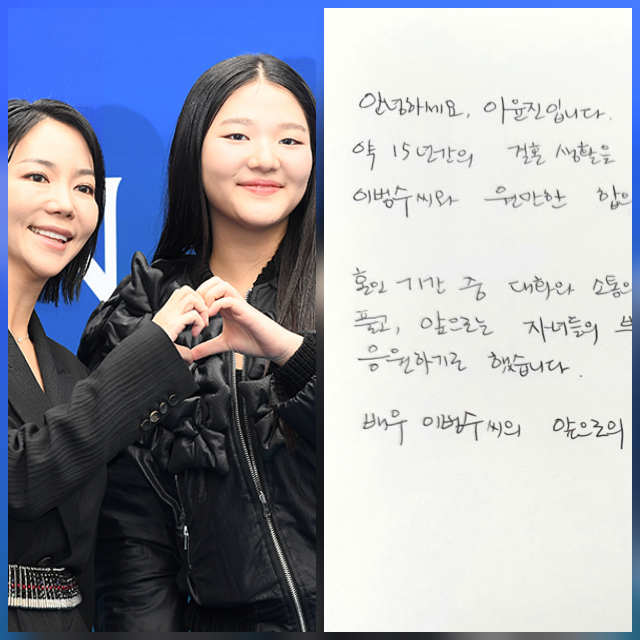 안녕하세요, 이윤진입니다.
약 15년간의 결혼 생활을
이범수씨와 원만한 합의
혼인 기간 중 대화와 소통의
풀고, 앞으로는 자녀들의 부
응원하기로 했습니다.
배우 이범수씨의 앞으로의
N